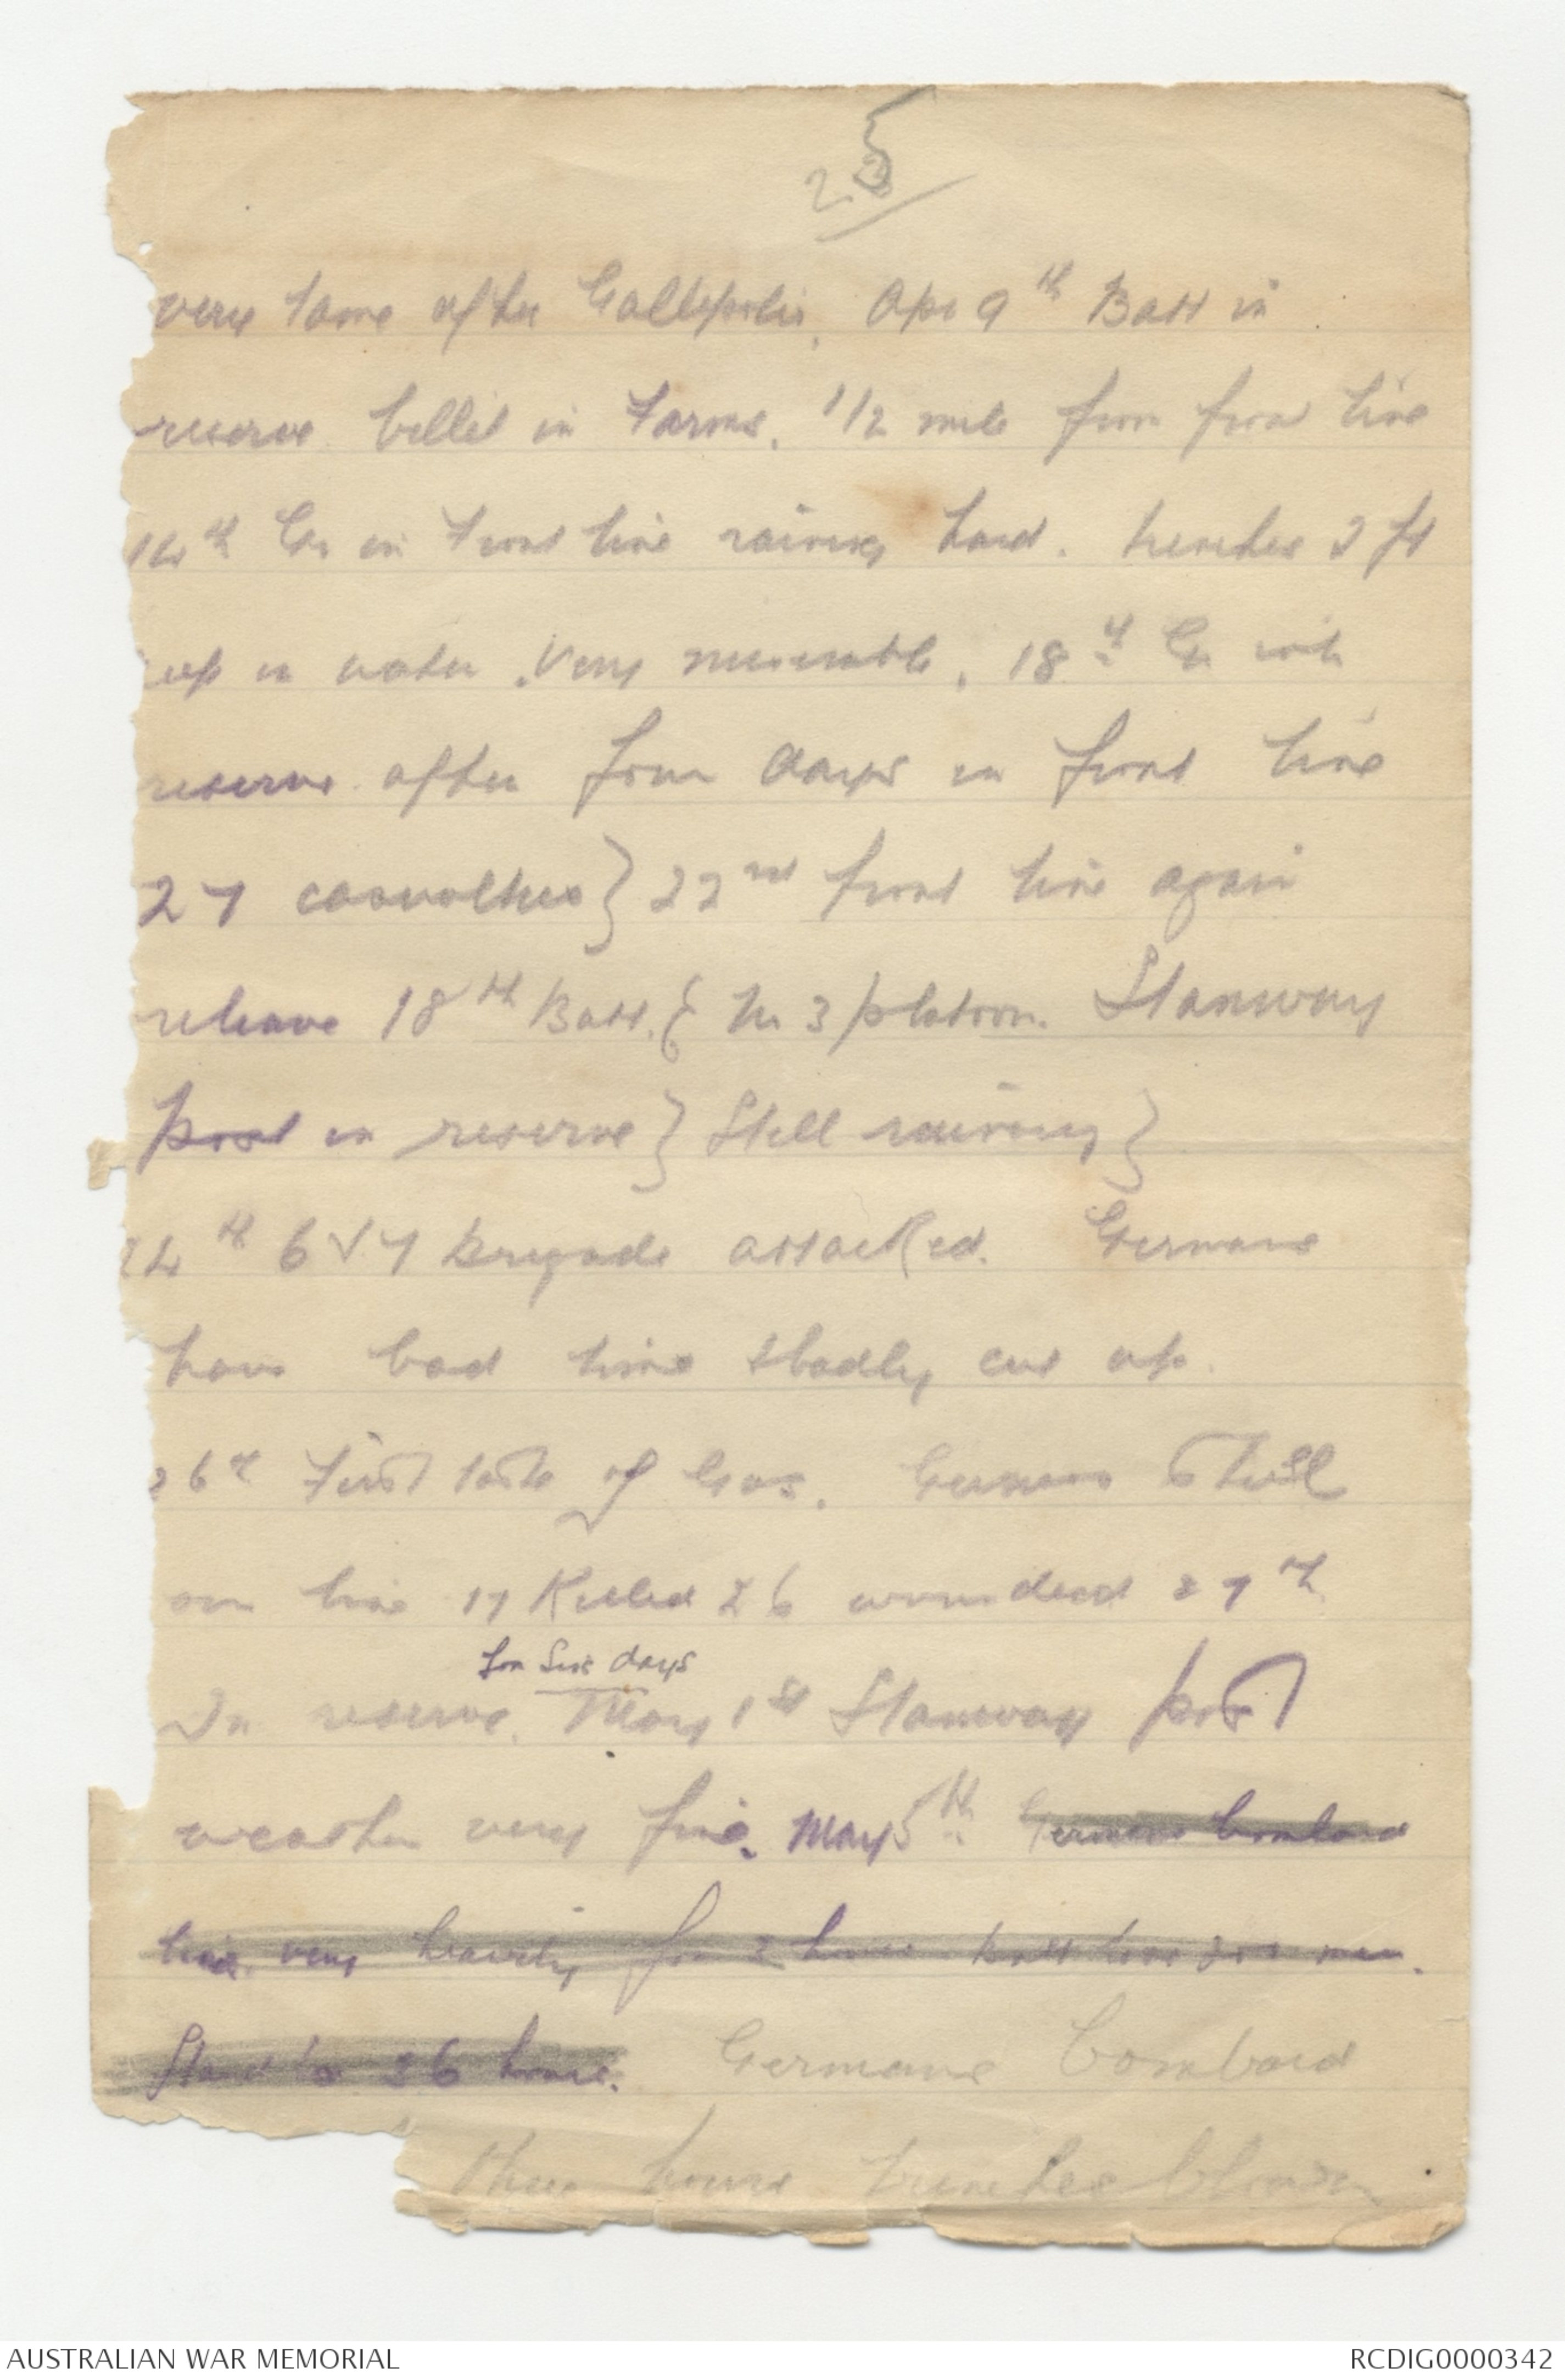 25
very tame after Gallipolis. Apr 9th Batt in
reserve billet in Farms. 1/2 mile from front line
14th Go in Front line raining hard. trenches 2 ft
up in water. Very miserable. 18th Go into
reserve after four days in front line
27 casualties} 22nd front line again
releave 18th Batt. { No 3 platoon. Stanway
post in reserve} Still raining}
24th 6 & 7 Brigade attacked. Germans
have bad time & badly cut up.
26th First taste of Gas. Germans Shell
our line 17 Killed 26 wounded 27th
for Six days
In reserve. May 1st Stanway post
weather very fine. May 5th Germans bombard
line very heavily for 2 hours. Batt lose men.
Stand to 36 hours. Germans bombard
three hours trenches blown